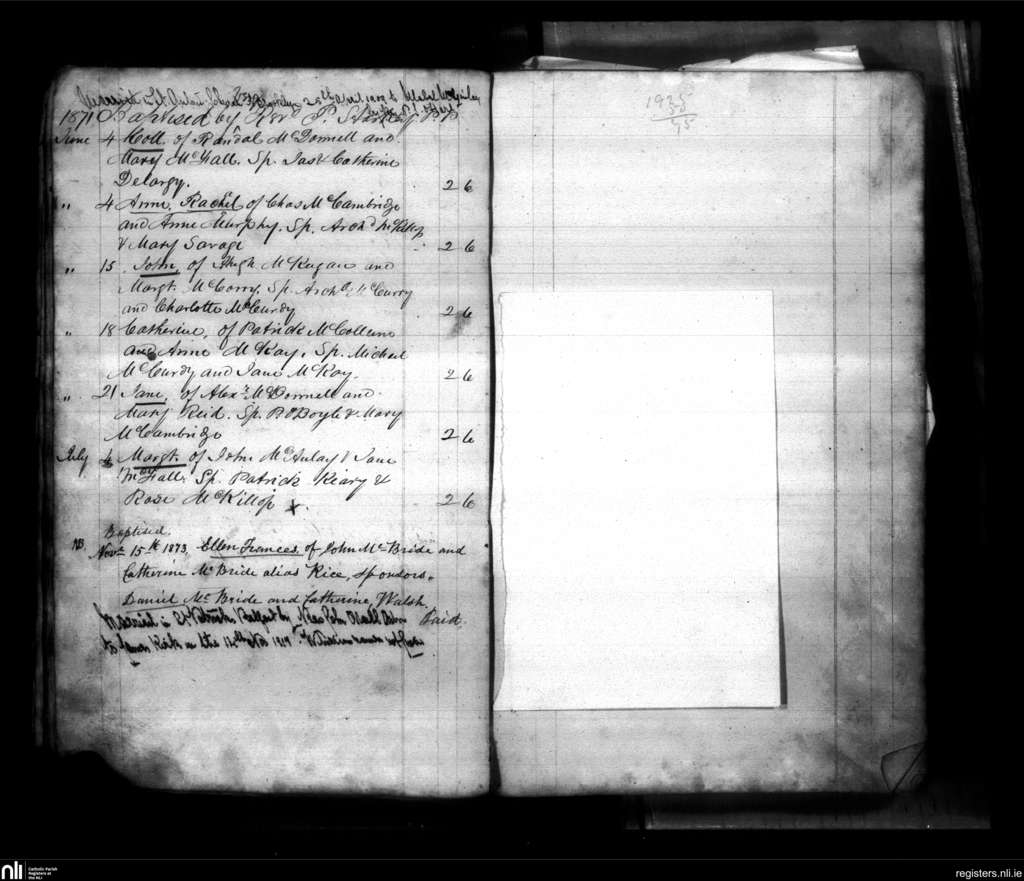 1871 Baptised by Revd P. Starkey P.P
June 4 Coll of Randal McDonnell and
Mary McFall. Sp. Jas & Catherine
Delargy. 2 6
" 4 Anne Rachel of Chas McCambridge
and Anne Murphy. Sp. Archd McKillop
& Mary Savage 2 6
" 15 John, of Hugh McKeegan and
Margt. McCorry. Sp. Archd McCurry
and Charlotte McCurdy 2 6
" 18 Catherine, of Patrick McCollum
and Anne McKay. Sp. Michael
McCurdy and Jane McKay. 2 6
" 21 Jane, of Alexr McDonnell and
Mary Reid. Sp. P. O'Boyle & Mary
McCambridge 2 6
July 4 Margt. of John McAulay & Jane
McFall. Sp. Patrick Keary &
Rose McKillop X. 2 6
Baptised
NB. Novr 15th 1873, Ellen Frances of John McBride and
Catherine McBride alias Rice, sponsors,
Daniel McBride and Catherine Walsh.
Married in St Patrick's Belfast by Paid.
to James on the
1935
75
nli Catholic Parish
Registers at
the NLI
registers.nli.ie